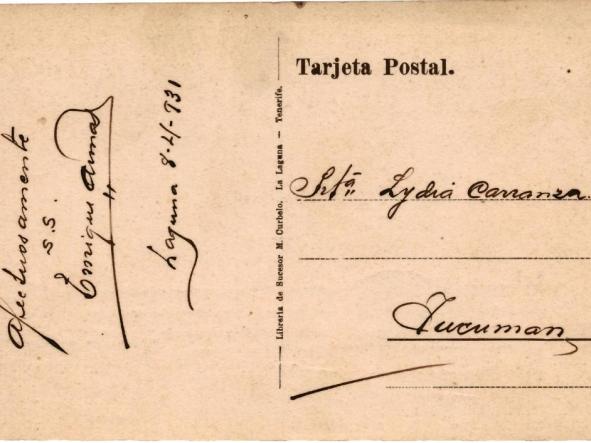 Afectuosamente
S. S.
Enrique Armas
Laguna 8-4-931
Librería de Sucesor M. Curbelo. La Laguna — Tenerife.
Tarjeta Postal.
Srta Lydia Carranza
Tucuman